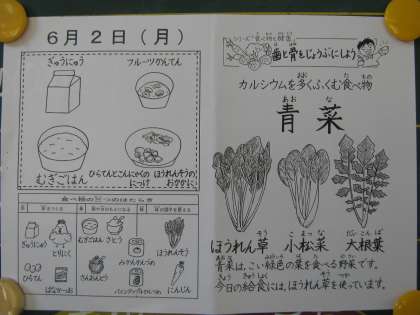 6月2日(月)
ぎゅうにゅう
フルーツかんてん
むぎごはん
ひらてんとこんにゃくの
につけ
ほうれんそうの
おかかに
食べ物の三つのはたらき
ぎゅうにゅう
とりにく
ひらてん
むぎごはん
さとう
さんおんとう
みかんかんづめ
パインアップルかんづめ
ほうれんそう
にんじん
シリーズ 食べ物と健康
歯と骨をじょうぶにしよう
カルシウムを多くふくむ食べ物
青菜
ほうれん草
小松菜
大根葉
青菜は、こい緑色の葉を食べる野菜です。
今日の給食には、ほうれん草を使っています。